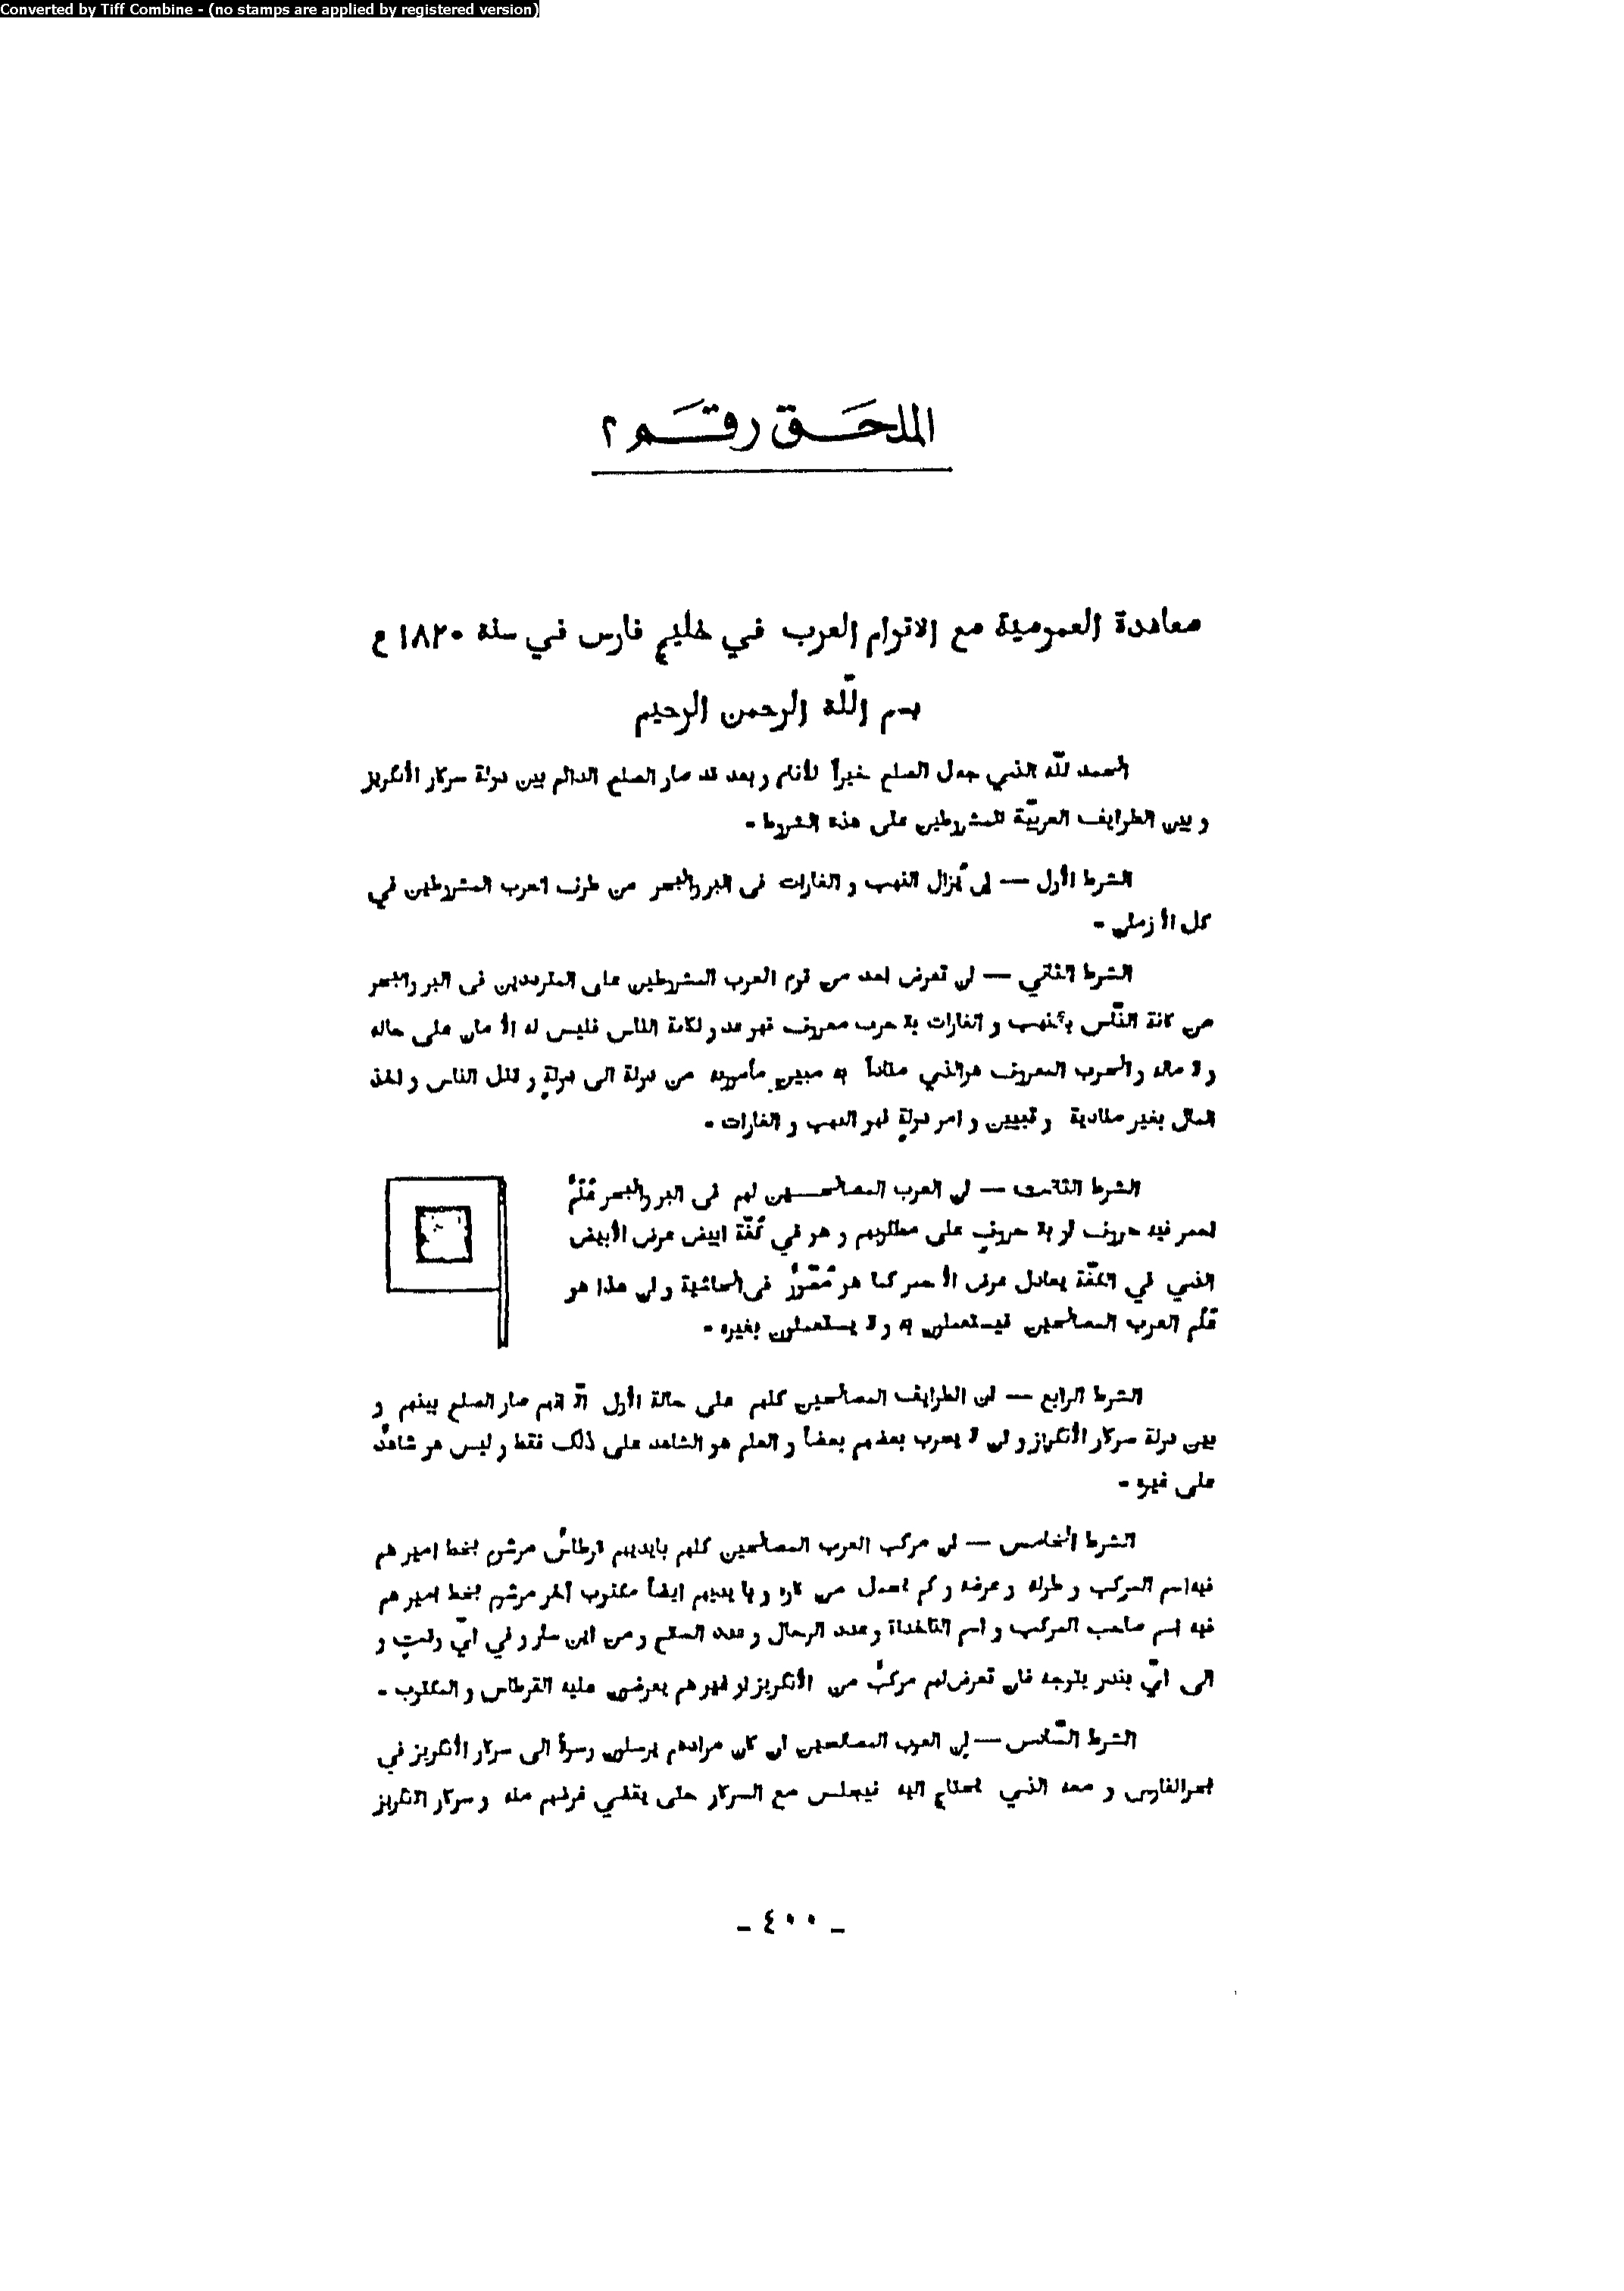 Converted by Tiff Combine - (no stamps are applied by registered version)
الملحَـــق رقــَــم ٢
معاهدة العمومية مع الاقوام العرب في خليج فارس في سنة ١٨٢٠ ع
بسم اللّه الرحمن الرحيم
الحمد للّه الذي جعل الصلح خيراً للأنام و بعد قد صار الصلح الدائم بين دولة سركار الأنكريز
و بين الطوايف العربيّة المشروطين على هذه الشروط -
الشرط الأول — ان يُزال النهب و الغارات فى البر والبحر من طرف العرب المشروطين في
كل الأزمان -
الشرط الثاني — ان تعرض احد من قوم العرب المشروطين على المترددين فى البر والبحر
من كافة النّاس بالنهب و الغارات بلا حرب معروف فهو عدو لكافة الناس فليس له الأمان على حاله
و لا ماله و الحرب المعروف هو الذي منادأ به مبين مأمور به من دولة الى دولةٍ و قتل الناس و اخذ
المال بغير منادية و تبيين و امر دولةٍ فهو النهب و الغارات -
الشرط الثالث — ان العرب المصالحـــين لهم فى البر والبحر عَلَمٌ
احمر فيه حروف او بلا حروفٍ على مطلوبهم و هو في كُفّة ابيض عرض الأبيض
الذي في الكفّة يعادل عرض الأحمر كما هو مُصَوَّرٌ فى الحاشية و ان هذا هو
عَلَم العرب المصالحين فيستعملون به و لا يستعملون بغيره -
الشرط الرابع — ان الطوايف المصالحين كلهم على حالة الأول الّا انهم صار الصلح بينهم و
بين دولة سركار الأنكريز و ان لا يحرب بعضهم بعضاً و العلم هو الشاهد على ذلك فقط و ليس هو شاهدٌ
على غيره -
الشرط الخامس — ان مركب العرب المصالحين كلهم بايديهم قرطاسٌ مرشوم بخط اميرهم
فيه اسم المركب و طوله و عرضه و كم يحمل من كاره و بايديهم ايضاً مكتوب آخر مرشوم بخط اميرهم
فيه اسم صاحب المركب و اسم الناخداة و عدد الرجال و عدد السلاح و من اين سار و في ايّ وقتٍ و
الى ايّ بندر يتوجه فان تعرض لهم مركبٌ من الأنكريز او غيرهم يعرضون عليه القرطاس و المكتوب -
الشرط السّادس — ان العرب المصالحين ان كان مرادهم يرسلون رسولاً الى سركار الأنكريز في
بحر الفارس و معه الذي يحتاج اليه فيجلس مع السركار حتى يقضي غرضهم منه و سركار الانكريز
- ٤٠٠ -